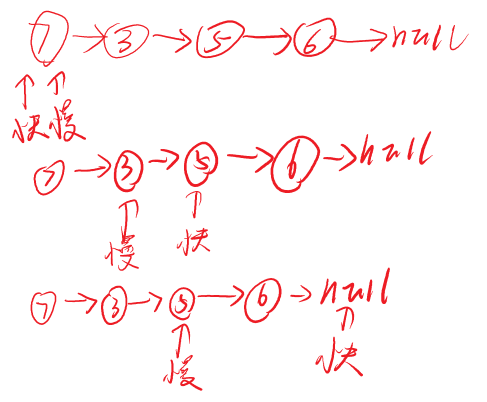 7 → 3 → 5 → 6 → null
↑ ↑
快 慢
7 → 3 → 5 → 6 → null
↑ ↑
慢 快
7 → 3 → 5 → 6 → null
↑ ↑
慢 快